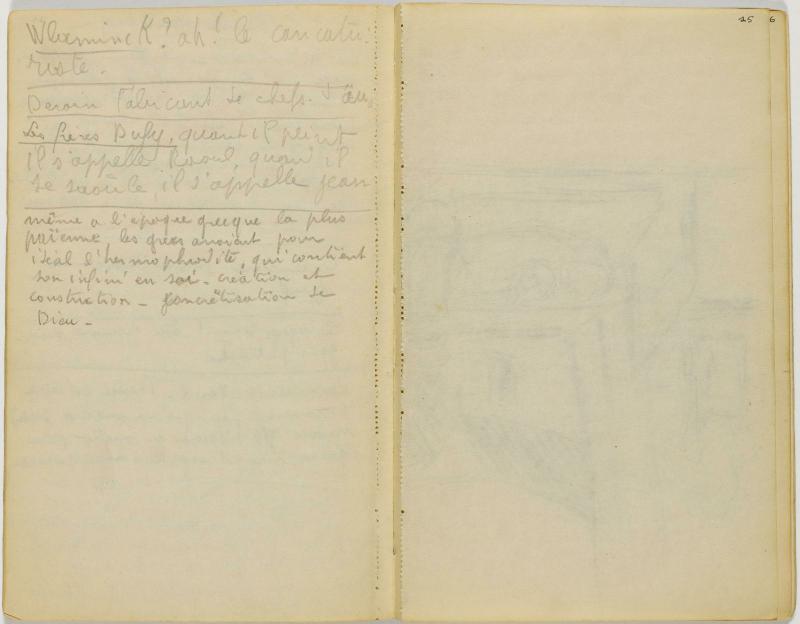 Wlaminck? ah! le caricatu-
riste.
Derain fabricant de chefs. d'œu.
Les frères Dufy, quant il peint
il s'appelle Raoul, quand il
se saoûle, il s'appelle Jean
même a l'epoque grecque la plus
païenne, les grecs avaient pour
idéal l'hermaphrodite, qui contient
son infini en soi - création et
construction - concrètisation de
Dieu -
25 6